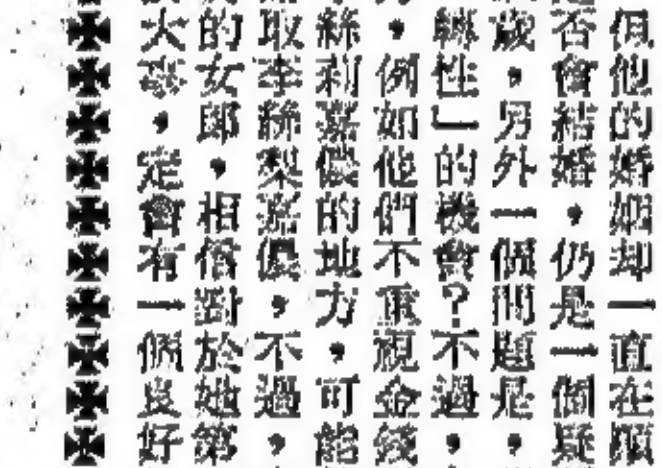 但他的婚姻却一直在
否會結婚，仍是一個疑
歲，另外一個問題是，
性」的機會？不過，
，例如他們不重視金錢
絲利嘉儂的地方，可能
取李絲梨嘉儂，不過，
的女郎，相信對於她第
大家，定會有一個良好